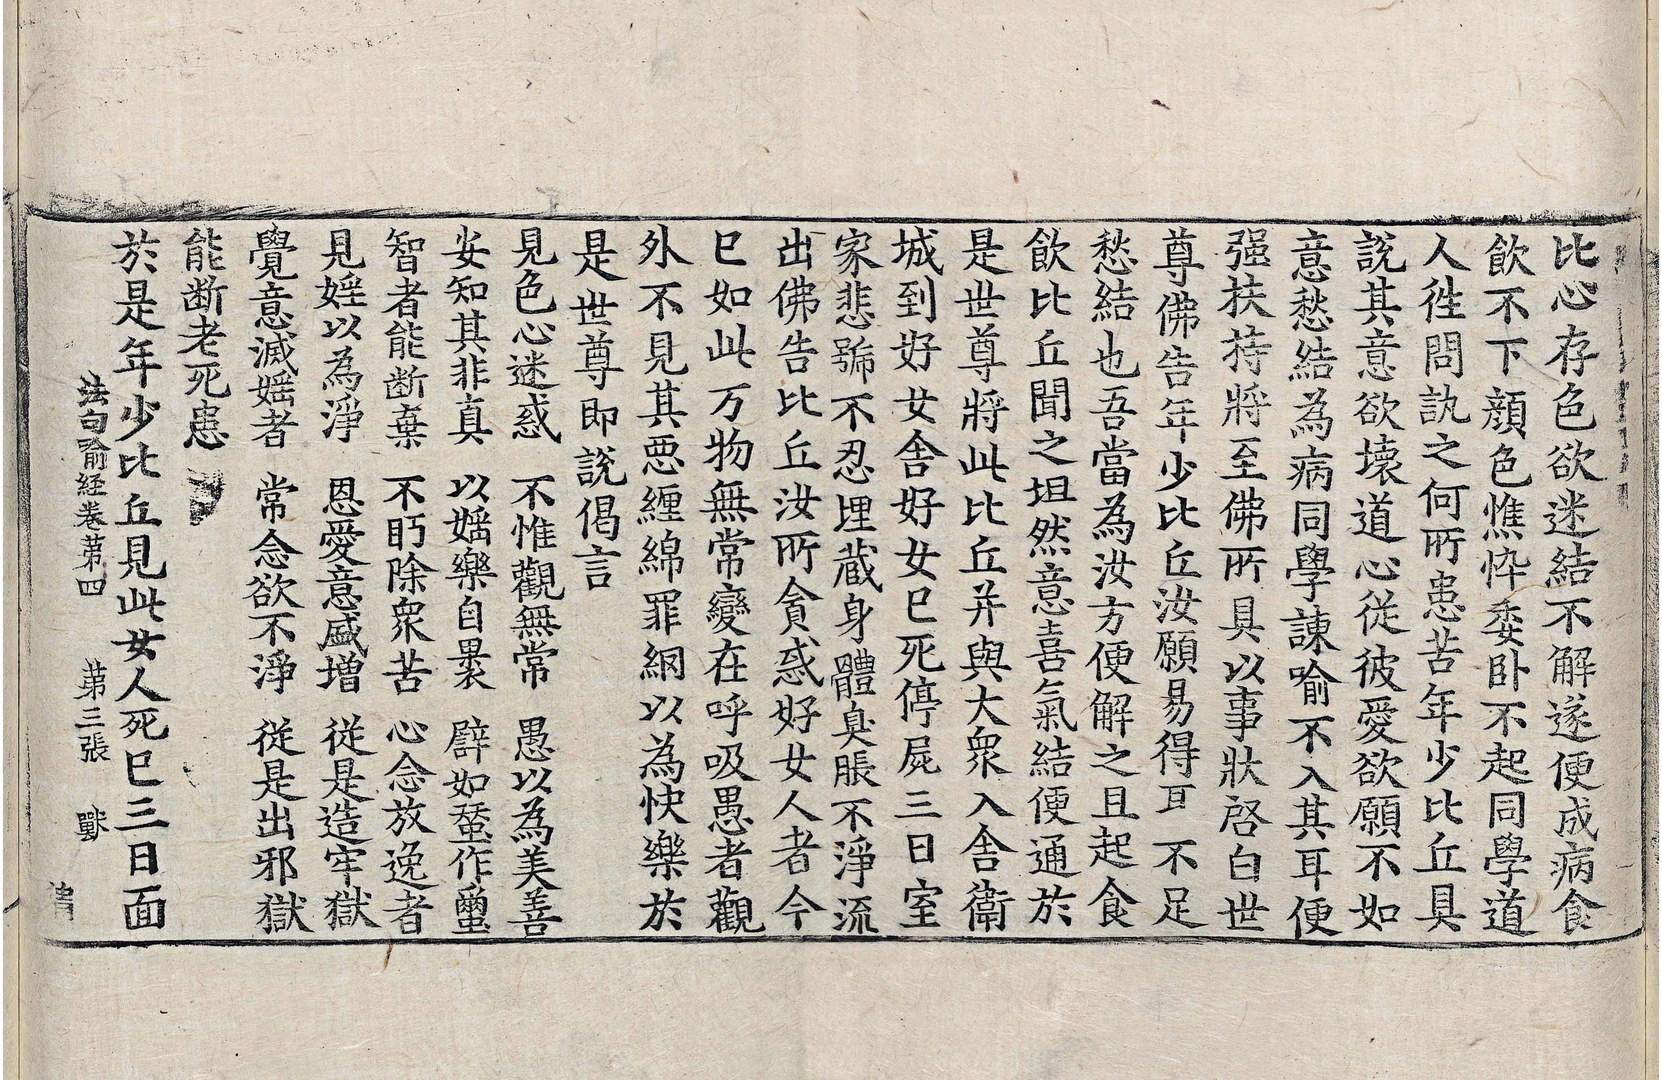 比心存色欲迷結不解遂便成病食
飲不下顔色憔悴委卧不起同學道
人徃問訊之何所患苦年少比丘具
說其意欲壞道心從彼愛欲願不如
意愁結為病同學諫喻不入其耳便
强扶持將至佛所具以事狀啓白世
尊佛告年少比丘汝願易得耳不足
愁結也吾當為汝方便解之且起食
飲比丘聞之坦然意喜氣結便通於
是世尊將此比丘并與大衆入舍衛
城到好女舍好女已死停屍三日室
家悲號不忍埋藏身體臭脹不淨流
出佛告比丘汝所貪惑好女人者今
已如此万物無常變在呼吸愚者觀
外不見其惡纏綿罪網以為快樂於
是世尊即說偈言
見色心迷惑　不惟觀無常　愚以為美善
安知其非真　以婬樂自裹　譬如蠶作繭
智者能断棄　不眄除衆苦　心念放逸者
見婬以為淨　恩愛意盛增　從是造牢獄
覺意滅婬者　常念欲不淨　從是出邪獄
能断老死患
於是年少比丘見此女人死已三日面
法句喻經卷苐四　苐三張